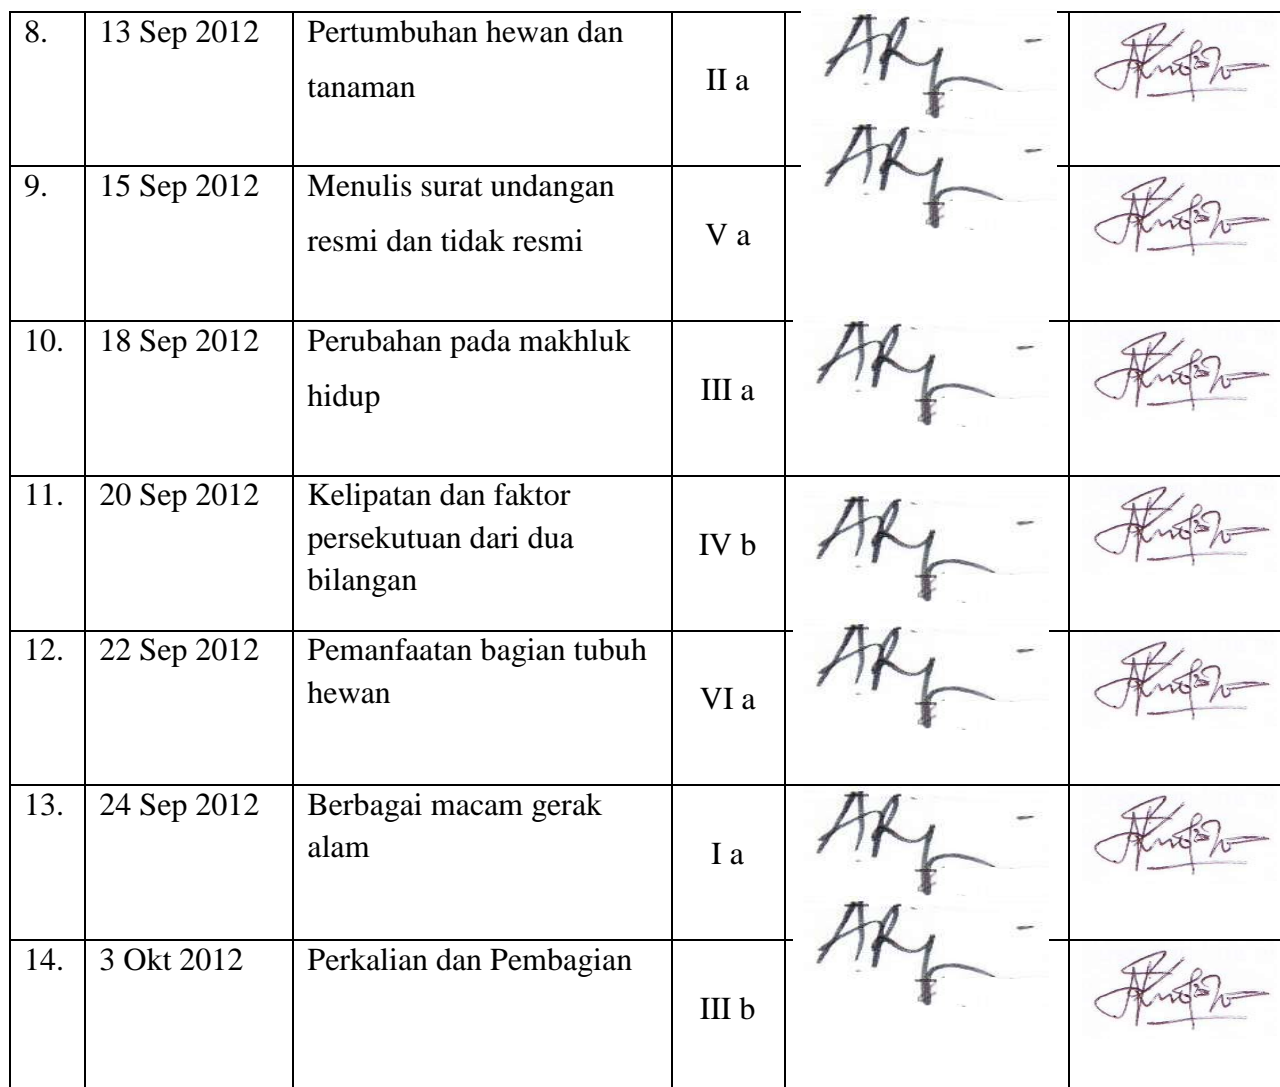 8. 13 Sep 2012 Pertumbuhan hewan dan
tanaman
II a
9. 15 Sep 2012 Menulis surat undangan
resmi dan tidak resmi
V a
10. 18 Sep 2012 Perubahan pada makhluk
hidup
III a
11. 20 Sep 2012 Kelipatan dan faktor
persekutuan dari dua
bilangan
IV b
12. 22 Sep 2012 Pemanfaatan bagian tubuh
hewan
VI a
13. 24 Sep 2012 Berbagai macam gerak
alam
I a
14. 3 Okt 2012 Perkalian dan Pembagian
III b